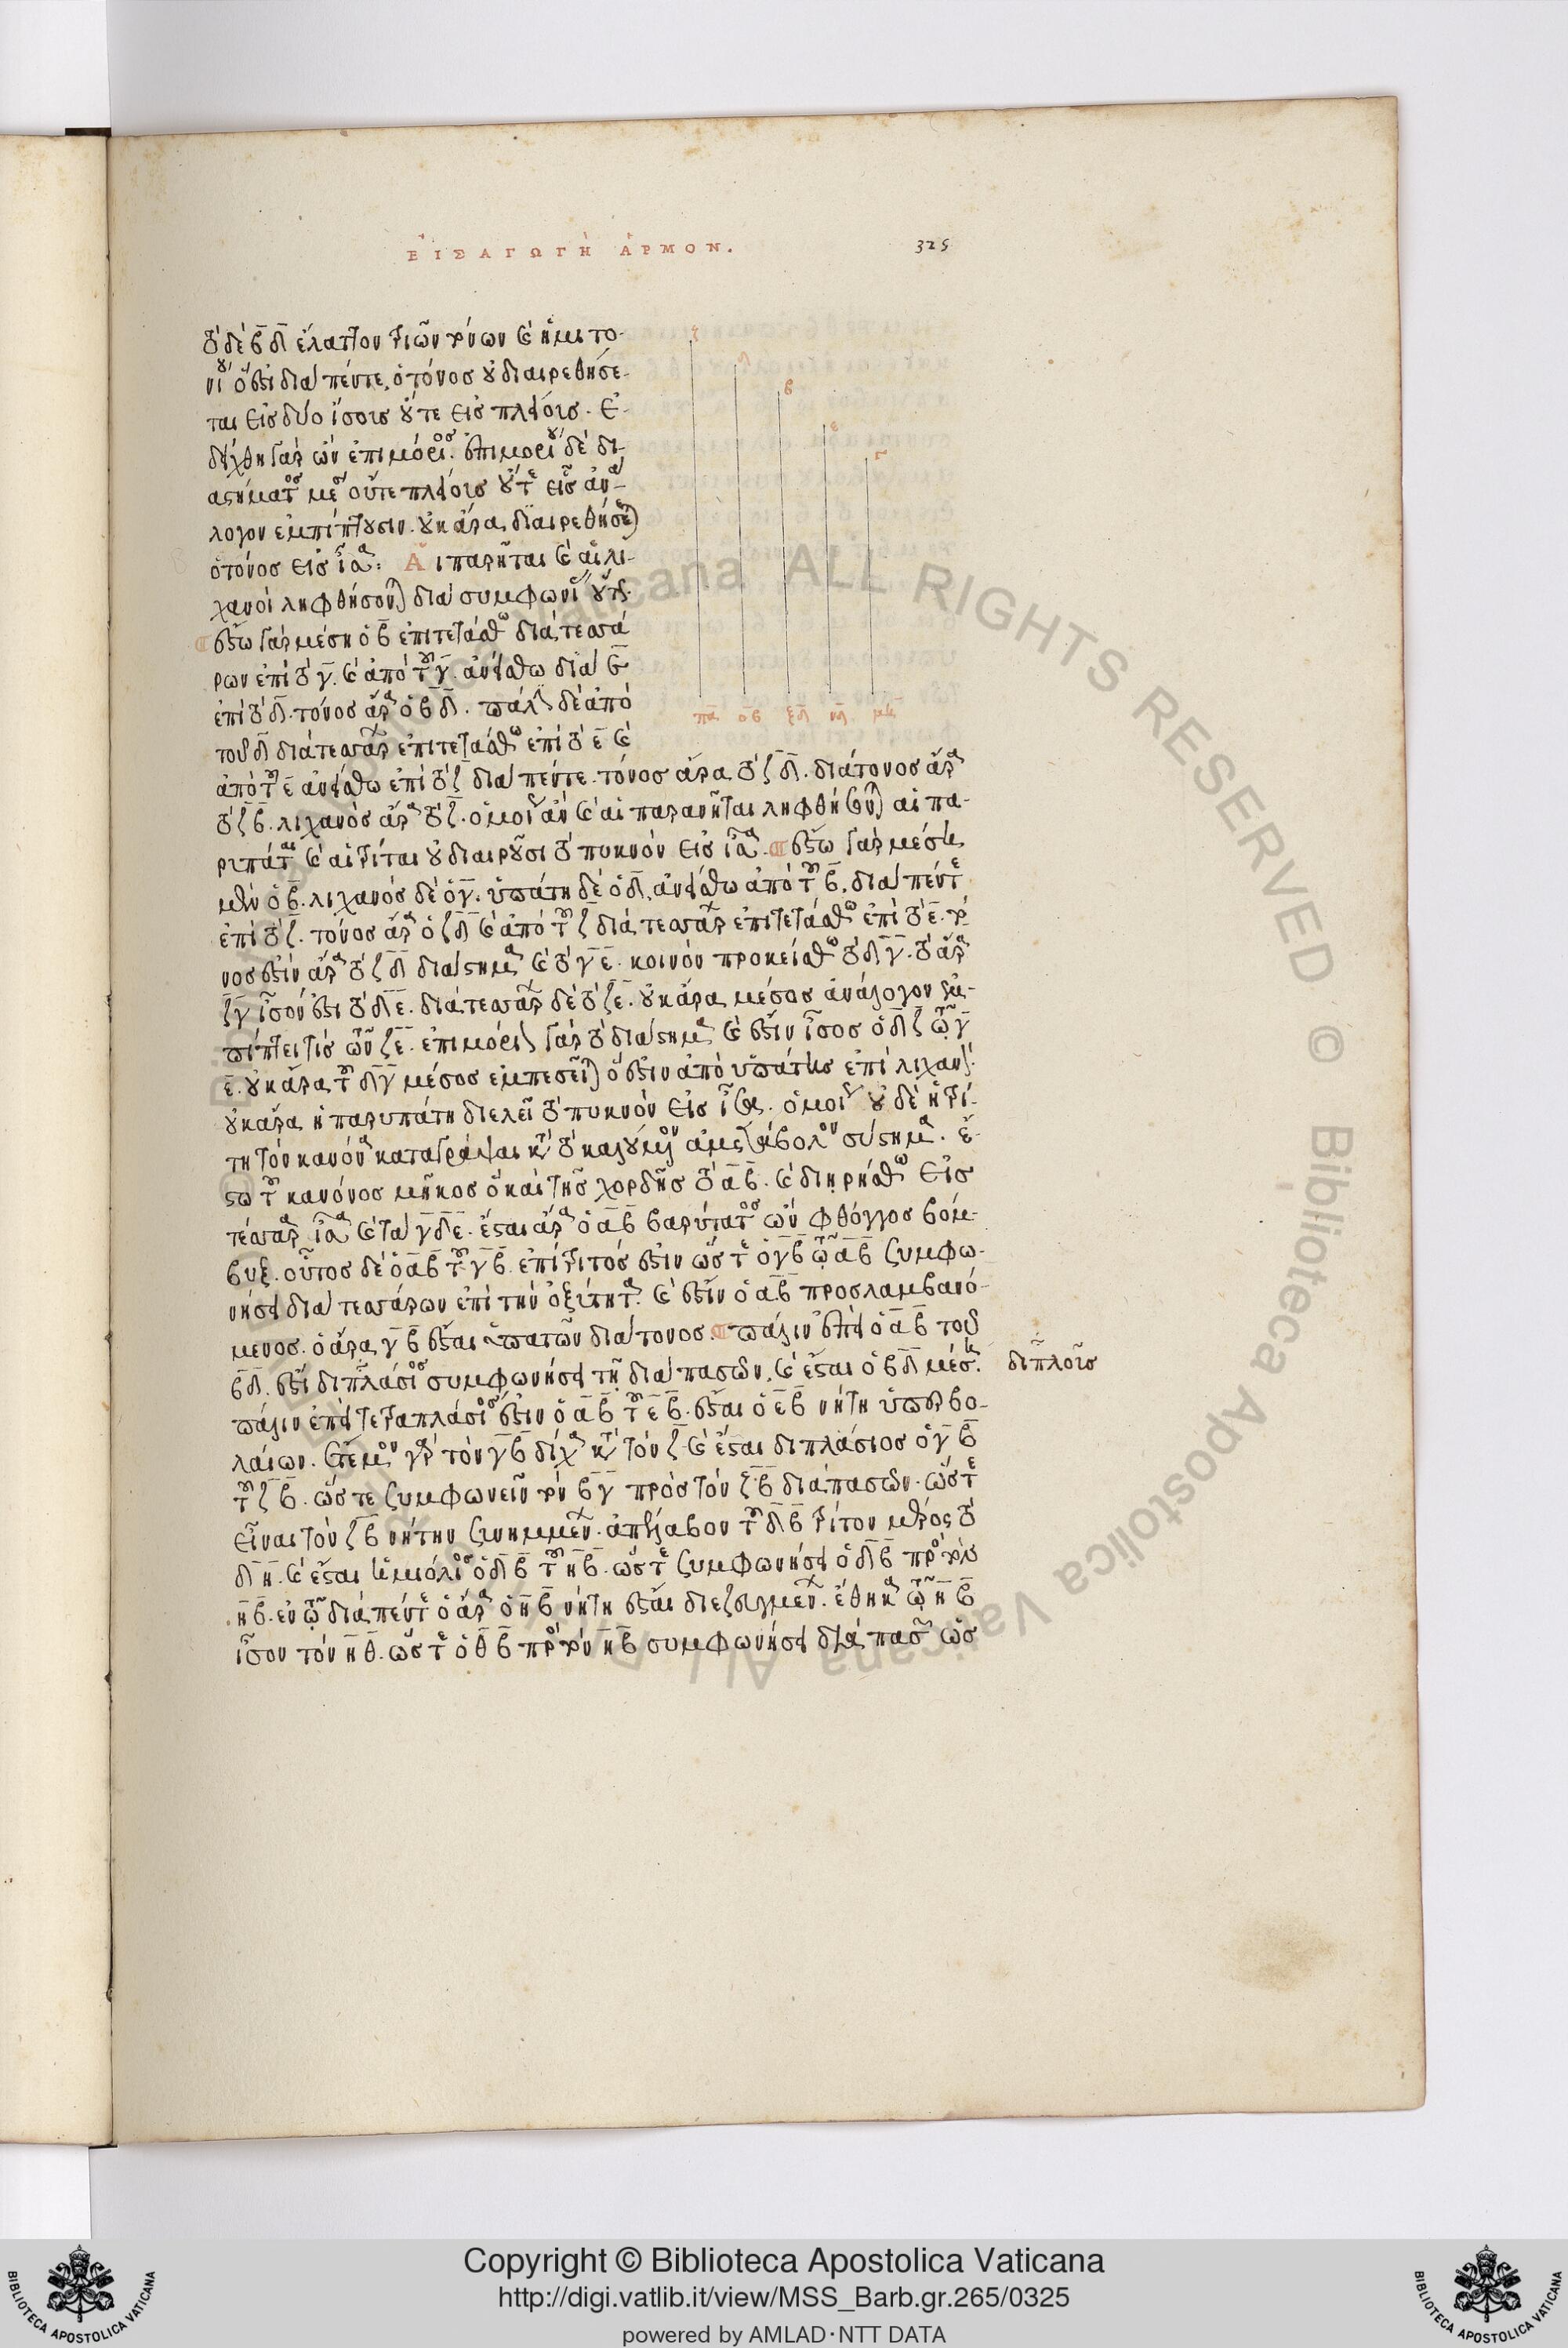 ΕΙΣΑΓΩΓΗ ΑΡΜΟΝ.
325
τὸ δὲ β̅δ̅ ἔλαττον τριῶν τόνων καὶ ἡμιτο-
νίου ὅ ἐστι διὰ πέντε. ὁ τόνος οὐ διαιρεθήσε-
ται εἰς δύο ἴσους οὔτε εἰς πλείους. ἐ-
δείχθη γὰρ ὢν ἐπιμόριος. ἐπιμορίου δὲ δι-
αστήματος μέσοι οὔτε πλείους οὔτε εἷς ἀνά-
λογον ἐμπίπτουσιν. οὐκ ἄρα διαιρεθήσεται
ὁ τόνος εἰς ἴσα: Αἱ παρῆται καὶ αἱ λι-
χανοὶ ληφθήσονται διὰ συμφωνίας οὕτως.
ἔστω γὰρ μέση ὁ β̅ ἐπιτετάσθω διὰ τεσσά
ρων ἐπὶ τὸ γ̅. καὶ ἀπὸ τοῦ γ̅ ἀνείσθω διὰ ε̅
ἐπὶ τὸ δ̅. τόνος ἄρα ὁ β̅δ̅. πάλιν δὲ ἀπὸ
τοῦ δ̅ διὰ τεσσάρων ἐπιτετάσθω ἐπὶ τὸ ε̅ καὶ
ἀπὸ τοῦ ε̅ ἀνείσθω ἐπὶ τὸ ζ̅ διὰ πέντε. τόνος ἄρα τὸ ζ̅δ̅. διάτονος ἄρα
τὸ ζ̅β̅. λιχανὸς ἄρα τὸ ζ̅. ὁμοίως ἂν καὶ αἱ παρανῆται ληφθήσονται αἱ πα-
ρυπάται καὶ αἱ τρίται οὐ διαιροῦσι τὸ πυκνὸν εἰς ἴσα. ἔστω γὰρ μέση
μὲν ὁ β̅. λιχανὸς δὲ ὁ γ̅. ὑπάτη δὲ ὁ δ̅. ἀνείσθω ἀπὸ τοῦ β̅. διὰ πέντε
ἐπὶ τὸ ζ̅. τόνος ἄρα ὁ ζ̅δ̅ καὶ ἀπὸ τοῦ ζ̅ διὰ τεσσάρων ἐπιτετάσθω ἐπὶ τὸ ε̅. τό
νος ἐστὶν ἄρα τὸ ζ̅δ̅ διάστημα καὶ τὸ γ̅ε̅. κοινὸν προκείσθω τὸ δ̅γ̅. τὸ ἄρα
ζ̅γ̅ ἴσον ἐστὶ τὸ δ̅ε̅. διὰ τεσσάρων δὲ τὸ ζ̅ε̅. οὐκ ἄρα μέσος ἀνάλογον ἐμ-
πίπτει τις τῶν ζ̅ε̅. ἐπιμόριον γὰρ τὸ διάστημα καὶ ἔστιν ἴσος ὁ δ̅ζ̅ τῷ γ̅
ε̅. οὐκ ἄρα τοῦ δ̅γ̅ μέσος ἐμπεσεῖται ὅ ἐστιν ἀπὸ ὑπάτης ἐπὶ λιχανόν.
οὐκ ἄρα ἡ παρυπάτη διελεῖ τὸ πυκνὸν εἰς ἴσα. ὁμοίως οὐδὲ ἡ τρί-
τη τὸν κανόνα καταγράψαι κατὰ τὸ καλούμενον ἀμετάβολον σύστημα. ἔ-
στω τοῦ κανόνος μῆκος ὃ καὶ τῆς χορδῆς τὸ α̅β̅. καὶ διῃρήσθω εἰς
τέσσαρα ἴσα κατὰ γ̅δ̅ε̅. ἔσται ἄρα ὁ α̅β̅ βαρύτατος ὢν φθόγγος βόμ-
βυξ. οὗτος δὲ ὁ α̅β̅ τοῦ γ̅β̅ ἐπίτριτός ἐστιν ὥστε ὁ γ̅β̅ τῷ α̅β̅ συμφω-
νήσει διὰ τεσσάρων ἐπὶ τὴν ὀξύτητα. καὶ ἔστιν ὁ α̅β̅ προσλαμβανό-
μενος. ὁ ἄρα γ̅β̅ ἔσται ὑπατῶν διάτονος. πάλιν ἐπεὶ ὁ α̅β̅ τοῦ
β̅δ̅. ἐστὶ διπλάσιος συμφωνήσει τῇ διὰ πασῶν. καὶ ἔσται ὁ β̅δ̅ μέση. διπλοῦς
πάλιν ἐπεὶ τετραπλάσιός ἐστιν ὁ α̅β̅ τοῦ ε̅β̅. ἔσται ὁ ε̅β̅ νήτη ὑπερβο-
λαίων. ἔτεμον γὰρ τὸν γ̅β̅ δίχα κατὰ τὸν ζ̅ καὶ ἔσται διπλάσιος ὁ γ̅β̅
τοῦ ζ̅β̅. ὥστε συμφωνεῖν τὸν β̅γ̅ πρὸς τὸν ζ̅β̅ διαπασῶν. ὥστε
εἶναι τὸν ζ̅β̅ νήτην συνημμένων. ἀπέλαβον τοῦ δ̅β̅ τρίτον μέρος τὸ
δ̅η̅. καὶ ἔσται ἡμιόλιος ὁ δ̅β̅ τοῦ η̅β̅. ὥστε συμφωνήσει ὁ δ̅β̅ πρὸς τὸν
η̅β̅. ἐν τῷ διὰ πέντε ὁ ἄρα ὁ η̅β̅ νήτη ἔσται διεζευγμένων. ἔθηκα τῷ η̅β̅
ἴσον τὸν η̅θ̅. ὥστε ὁ θ̅β̅ πρὸς τὸν η̅β̅ συμφωνήσει διὰ πασῶν ὡς
π̅α̅ ο̅β̅ ξ̅δ̅ ν̅δ̅ μ̅η̅
Copyright © Biblioteca Apostolica Vaticana
http://digi.vatlib.it/view/MSS_Barb.gr.265/0325
powered by AMLAD·NTT DATA
© Biblioteca Apostolica Vaticana ALL RIGHTS RESERVED
BIBLIOTECA APOSTOLICA VATICANA
BIBLIOTECA APOSTOLICA VATICANA